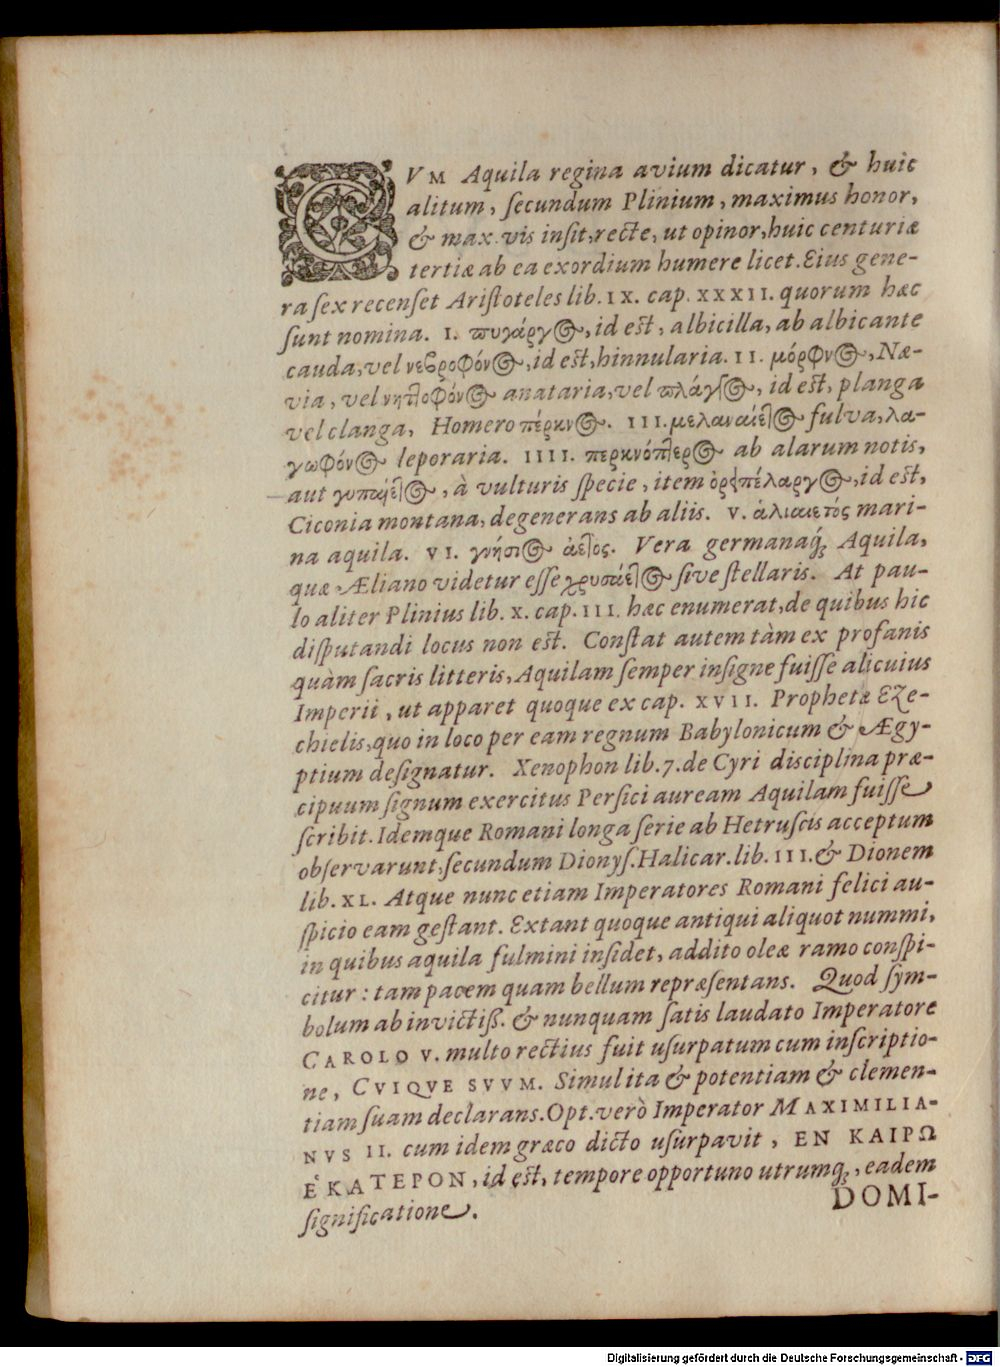 CVM Aquila regina avium dicatur, & huic
alitum, ſecundum Plinium, maximus honor,
& max. vis inſit, recte, ut opinor, huic centuriæ
tertiæ ab ea exordium ſumere licet. Eius gene-
ra ſex recenſet Ariſtoteles lib. IX. cap. XXXII. quorum hæc
ſunt nomina. I. πυγάργος, id eſt, albicilla, ab albicante
cauda, vel νεβροφόνος, id eſt, hinnularia. II. μόρφνος, Næ-
via, vel νηττοφόνος anataria, vel πλάγγος, id eſt, planga
vel clanga, Homero πέρκνος. III. μελαναίετος fulva, λα-
γωφόνος leporaria. IIII. περκνόπτερος ab alarum notis,
aut γυπαίετος, à vulturis ſpecie, item ὀρειπέλαργος, id eſt,
Ciconia montana, degenerans ab aliis. V. ἁλιαιετός mari-
na aquila. VI. γνήσιος ἀετος. Vera germanaq́ꝫ Aquila,
quæ Æliano videtur eſſe χρυσαίετος ſive ſtellaris. At pau-
lo aliter Plinius lib. X. cap. III. hæc enumerat, de quibus hic
diſputandi locus non eſt. Conſtat autem tàm ex profanis
quàm ſacris litteris, Aquilam ſemper inſigne fuiſſe alicuius
Imperii, ut apparet quoque ex cap. XVII. Prophetæ Eze-
chielis, quo in loco per eam regnum Babylonicum & Ægy-
ptium deſignatur. Xenophon lib. 7. de Cyri disciplina præ-
cipuum ſignum exercitus Perſici auream Aquilam fuiſſe
ſcribit. Idemque Romani longa ſerie ab Hetruſcis acceptum
obſervarunt, ſecundum Dionyſ. Halicar. lib. III. & Dionem
lib. XL. Atque nunc etiam Imperatores Romani felici au-
ſpicio eam geſtant. Extant quoque antiqui aliquot nummi,
in quibus aquila fulmini inſidet, addito oleæ ramo conſpi-
citur: tam pacem quam bellum repræſentans. Quod ſym-
bolum ab invictiß. & nunquam ſatis laudato Imperatore
CAROLO V. multo rectius fuit uſurpatum cum inſcriptio-
ne, CVIQVE SVVM. Simul ita & potentiam & clemen-
tiam ſuam declarans. Opt. verò Imperator MAXIMILIA-
NVS II. cum idem græco dicto uſurpavit, EN KAIPΩ
ἙKATEPON, id eſt, tempore opportuno utrumq́ꝫ, eadem
ſignificatione.
DOMI-
Digitalisierung gefördert durch die Deutsche Forschungsgemeinschaft - DFG